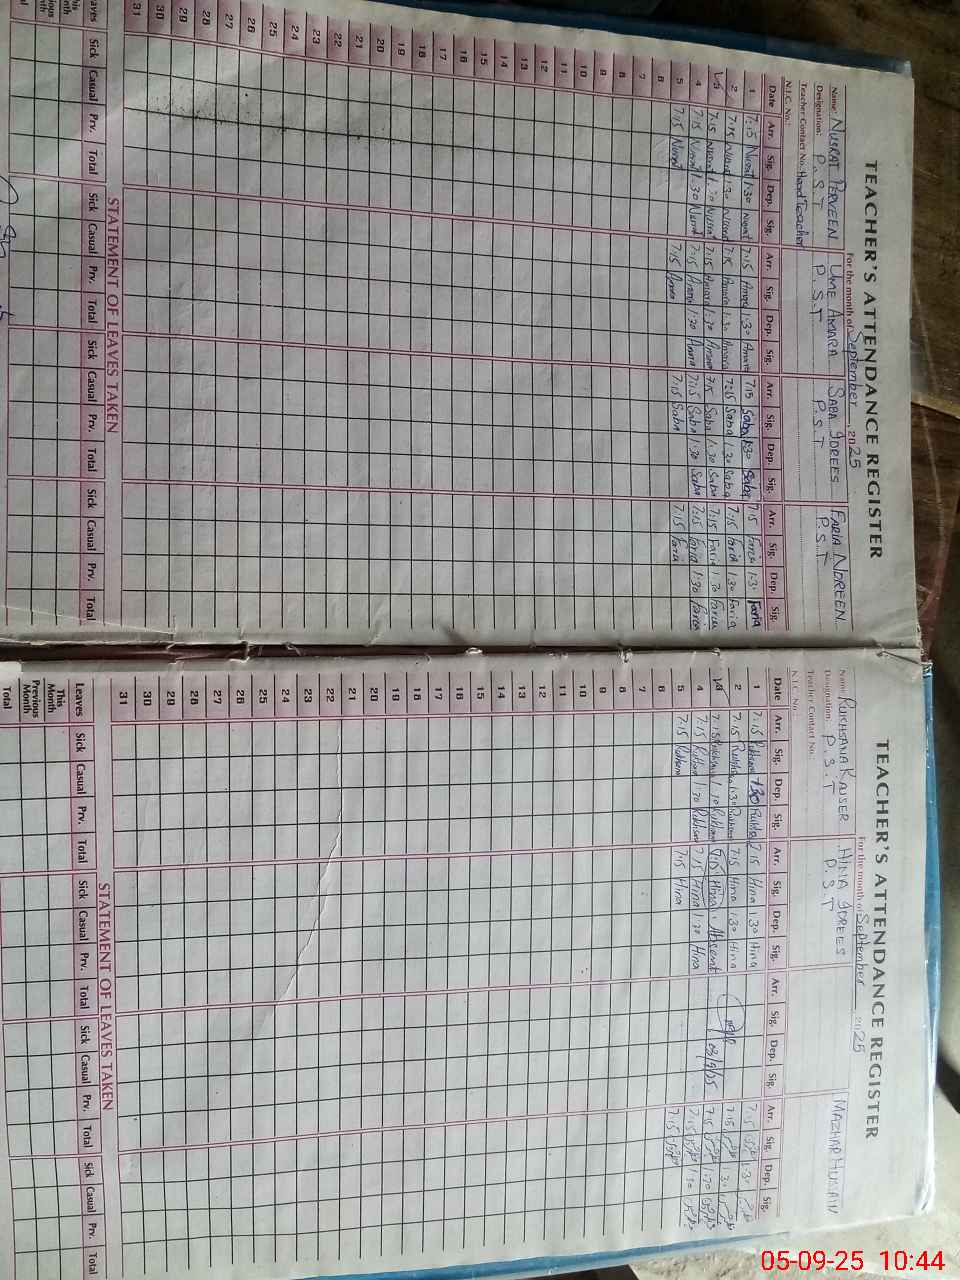 TEACHER'S ATTENDANCE REGISTER
For the month of September 2025
Name: NUSRAT PERVEEN UME AMARA SABA IDREES FARIA NOREEN
Designation: P.S.T P.S.T P.S.T P.S.T
Teacher Contact No. Head Teacher
N.I.C. No.:
Date Arr. Sig. Dep. Sig. Arr. Sig. Dep. Sig. Arr. Sig. Dep. Sig. Arr. Sig. Dep. Sig.
1 7:15 Nusrat 1:30 Nusrat 7:15 Amara 1:30 Amara 7:15 Saba 1:30 Saba 7:15 Faria 1:30 Faria
2 7:15 Nusrat 1:30 Nusrat 7:15 Amara 1:30 Amara 7:15 Saba 1:30 Saba 7:15 Faria 1:30 Faria
3 7:15 Nusrat 1:30 Nusrat 7:15 Amara 1:30 Amara 7:15 Saba 1:30 Saba 7:15 Faria 1:30 Faria
4 7:15 Nusrat 1:30 Nusrat 7:15 Amara 1:30 Amara 7:15 Saba 1:30 Saba 7:15 Faria 1:30 Faria
5 7:15 Nusrat 7:15 Amara 7:15 Saba 7:15 Faria
6
7
8
9
10
11
12
13
14
15
16
17
18
19
20
21
22
23
24
25
26
27
28
29
30
31
STATEMENT OF LEAVES TAKEN
Leaves Sick Casual Prv. Total Sick Casual Prv. Total Sick Casual Prv. Total Sick Casual Prv. Total
This Month
Previous Month
Total
TEACHER'S ATTENDANCE REGISTER
For the month of September 2025
Name: RUKHSANA KAUSER HINA IDREES MAZHAR HUSSAIN
Designation: P.S.T P.S.T
Teacher Contact No.:
N.I.C. No.:
Date Arr. Sig. Dep. Sig. Arr. Sig. Dep. Sig. Arr. Sig. Dep. Sig. Arr. Sig. Dep. Sig.
1 7:15 1:30 7:15 Hina 1:30 Hina 7:15 1:30
2 7:15 1:30 7:15 Hina 1:30 Hina 7:15 1:30
3 7:15 1:30 7:15 Hina Absent 03/9/25 7:15 1:30
4 7:15 1:30 7:15 Hina 1:30 Hina 7:15 1:30
5 7:15 7:15 Hina 7:15
6
7
8
9
10
11
12
13
14
15
16
17
18
19
20
21
22
23
24
25
26
27
28
29
30
31
STATEMENT OF LEAVES TAKEN
Leaves Sick Casual Prv. Total Sick Casual Prv. Total Sick Casual Prv. Total Sick Casual Prv. Total
This Month
Previous Month
Total
05-09-25 10:44